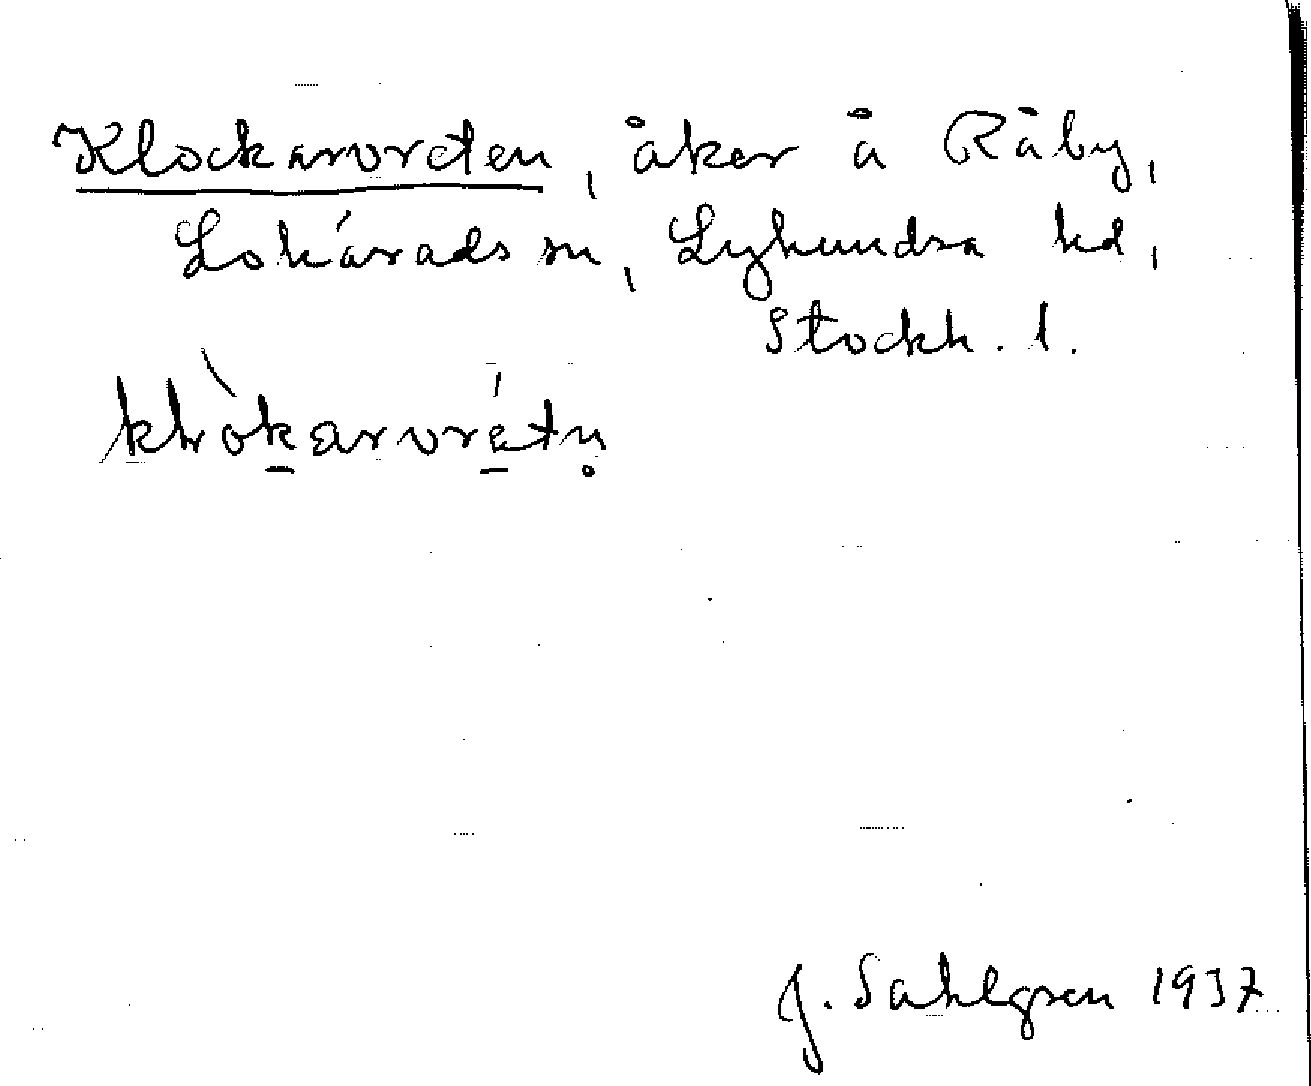 Klockarvreten, åker å Råby,
Lohärads sn, Lyhundra hd,
Stockh. l.
J. Sahlgren 1937